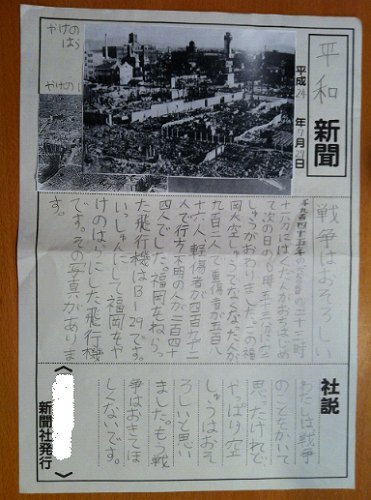 平和 新聞
平成24年7月29日
やけの
はら
やけの
戦争はおそろしい
千九百四十五年の 二十三時
十一分にばくだんがおちはじめ
て次の日の 時五十三分に空
しゅうがおわりました。この福
岡大空しゅうでなくなった人が
九百二人で重傷者が五百八
十六人、軽傷者が四百九十二
人で行方不明の人が二百四十
四人でした。福岡をねらっ
た飛行機はB-29です。
いっしゅんにして福岡をや
けのはらにした飛行機
です。その写真がありま
す。
社説
わたしは戦争
のことをかいて
思ったけれど
やっぱり空
しゅうはおそ
ろしいと思い
ました。もう戦
争はおきてほ
しくないです。
〈 新聞社発行 〉